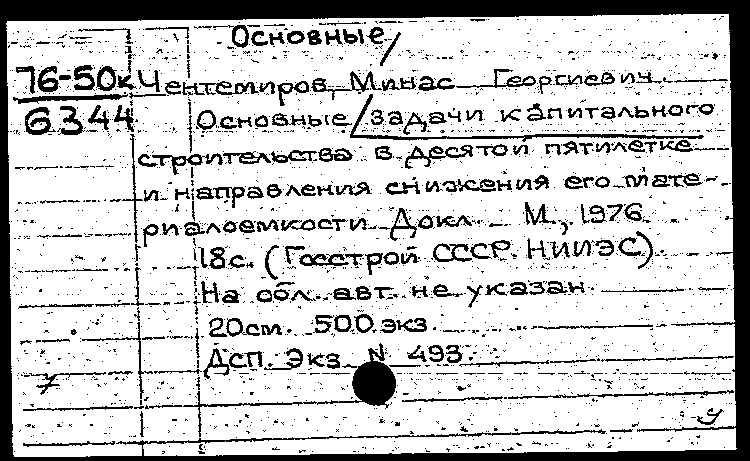 Основные/
76-50к Чентемиров, Минас Георгиевич.
6344 Основные/задачи капитального
строительства в десятой пятилетке
и направления снижения его мате-
риалоемкости. Докл. М., 1976.
18с. (Госстрой СССР. НИИЭС).
На обл. авт. не указан.
20см. 500 экз.
Дсп. Экз. N 493.